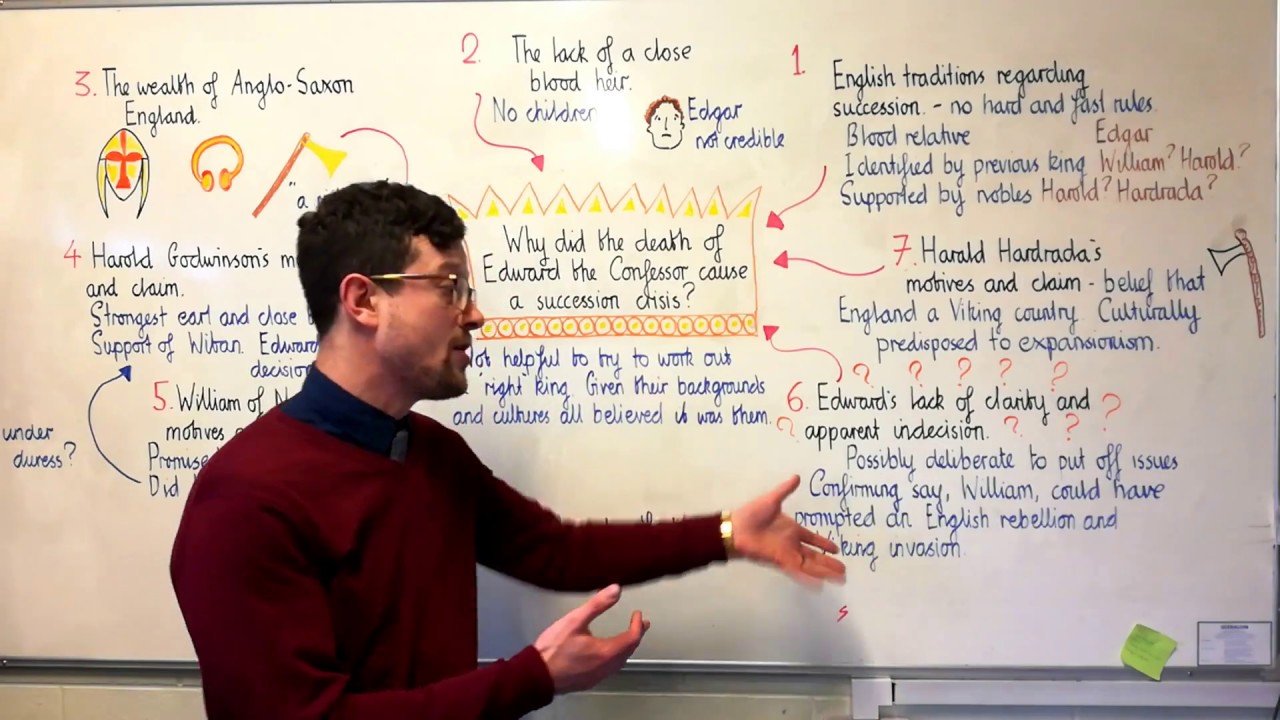 1. English traditions regarding
succession. - no hard and fast rules.
Blood relative Edgar
Identified by previous king William? Harold?
Supported by nobles Harold? Hardrada?
2. The lack of a close
blood heir.
No children
Edgar
not credible
3. The wealth of Anglo-Saxon
England.
"a
4 Harold Godwinson's
and claim.
Strongest earl and close
Support of Witan. Edward
decision
5. William of
motives
Promise
Did
under
duress?
Why did the death of
Edward the Confessor cause
a succession crisis?
Not helpful to try to work out
'right' king. Given their backgrounds
and cultures all believed it was them.
7. Harald Hardrada's
motives and claim - belief that
England a Viking country. Culturally
predisposed to expansionism.
? ? ? ? ?
6. Edward's lack of clarity and ?
? apparent indecision. ? ?
Possibly deliberate to put off issues
Confirming say, William, could have
prompted an English rebellion and
Viking invasion.
s